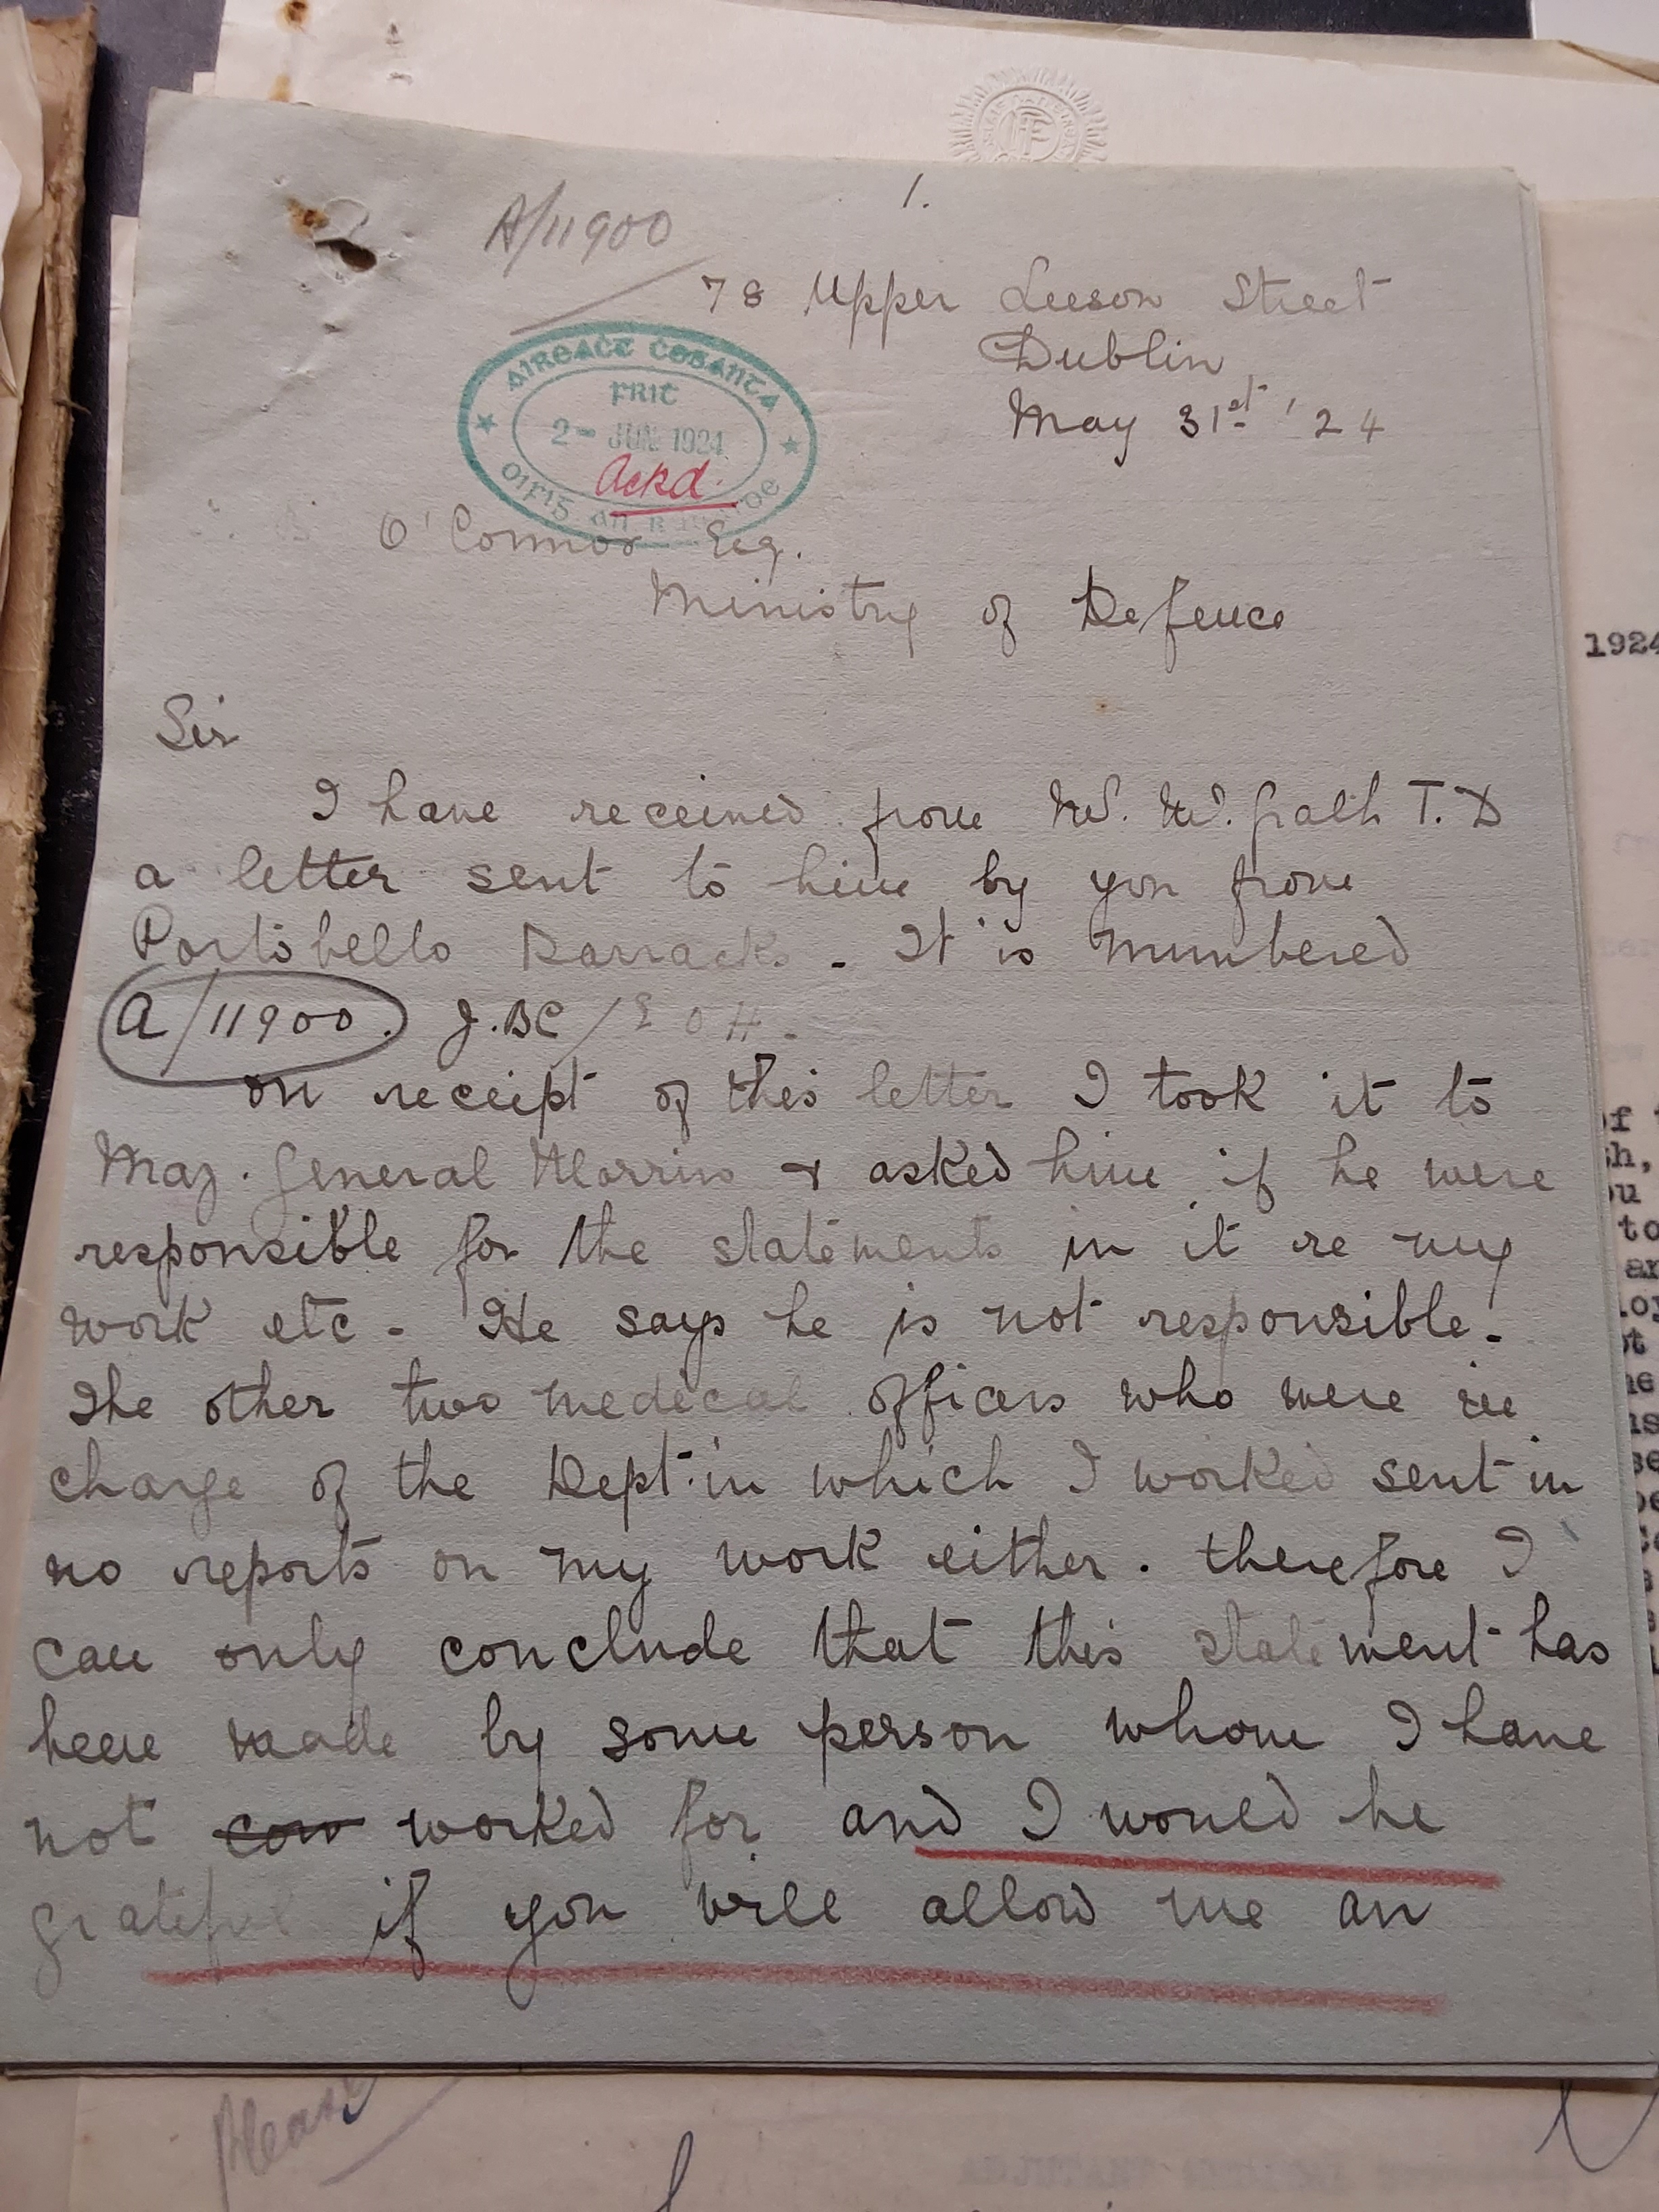 1.
A/11900
78 Upper Leeson Street
Dublin
May 31st '24
AIREACT COSANTA
FRIC
2- JUN 1924
Ackd.
OIFIG AN
O'Connor Esq.
Ministry of Defence
Sir
I have received from Mr. McGrath T.D
a letter sent to him by you from
Portobello Barracks. It is numbered
A/11900. J.BC/EOH.
on receipt of this letter I took it to
Maj. General Morris & asked him if he were
responsible for the statements in it re my
work etc - He says he is not responsible.
The other two medical officers who were in
charge of the Dept. in which I worked sent in
no reports on my work either. therefore I
can only conclude that this statement has
been made by some person whom I have
not cow worked for and I would be
grateful if you will allow me an
1924
Please